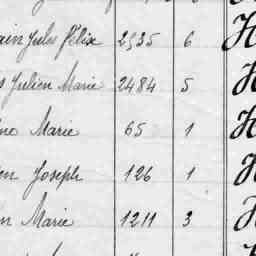 ain Jules Félix 2535 6 H
s Julien Marie 2484 5 H
no Marie 65 1 H
en Joseph 126 1 H
n Marie 1211 3 H